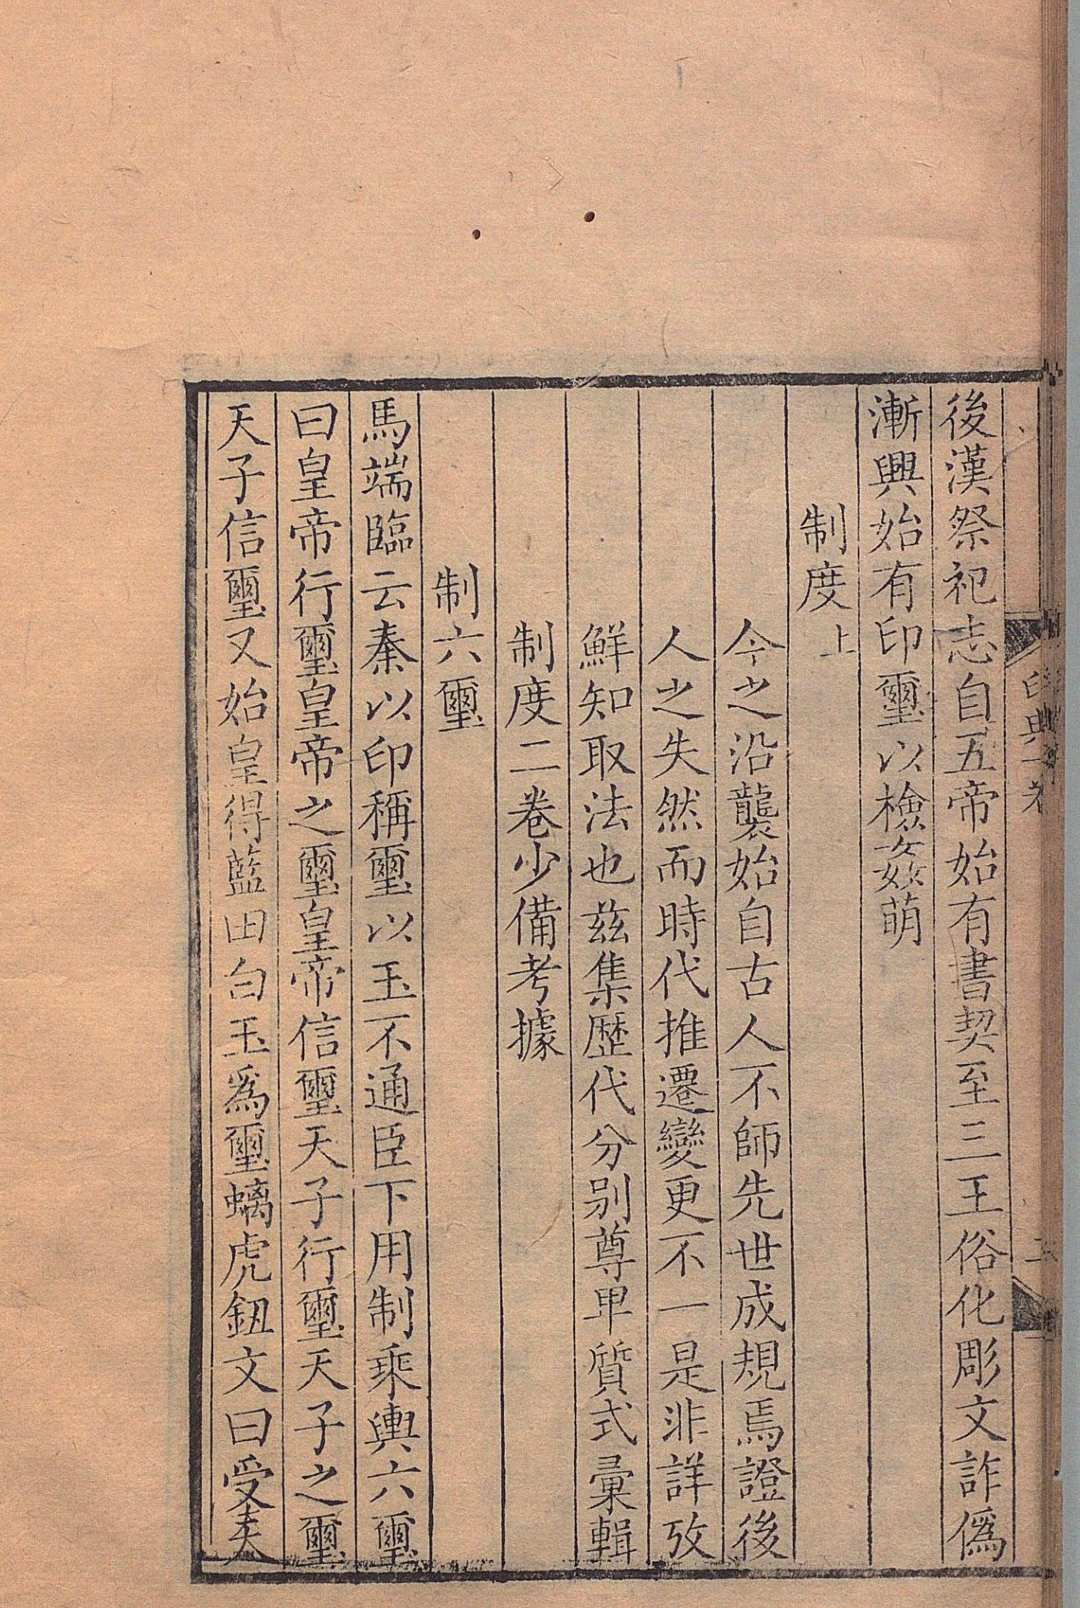 後漢祭祀志自五帝始有書契至三王俗化彫文詐僞
漸興始有印璽以檢姦萌
制度上
今之沿襲始自古人不師先世成規焉證後
人之失然而時代推遷變更不一是非詳攷
鮮知取法也茲集歷代分别尊卑質式彙輯
制度二卷少備考據
制六璽
馬端臨云秦以印稱璽以玉不通臣下用制乘輿六璽
曰皇帝行璽皇帝之璽皇帝信璽天子行璽天子之璽
天子信璽又始皇得藍田白玉爲璽螭虎鈕文曰受天
印典一卷